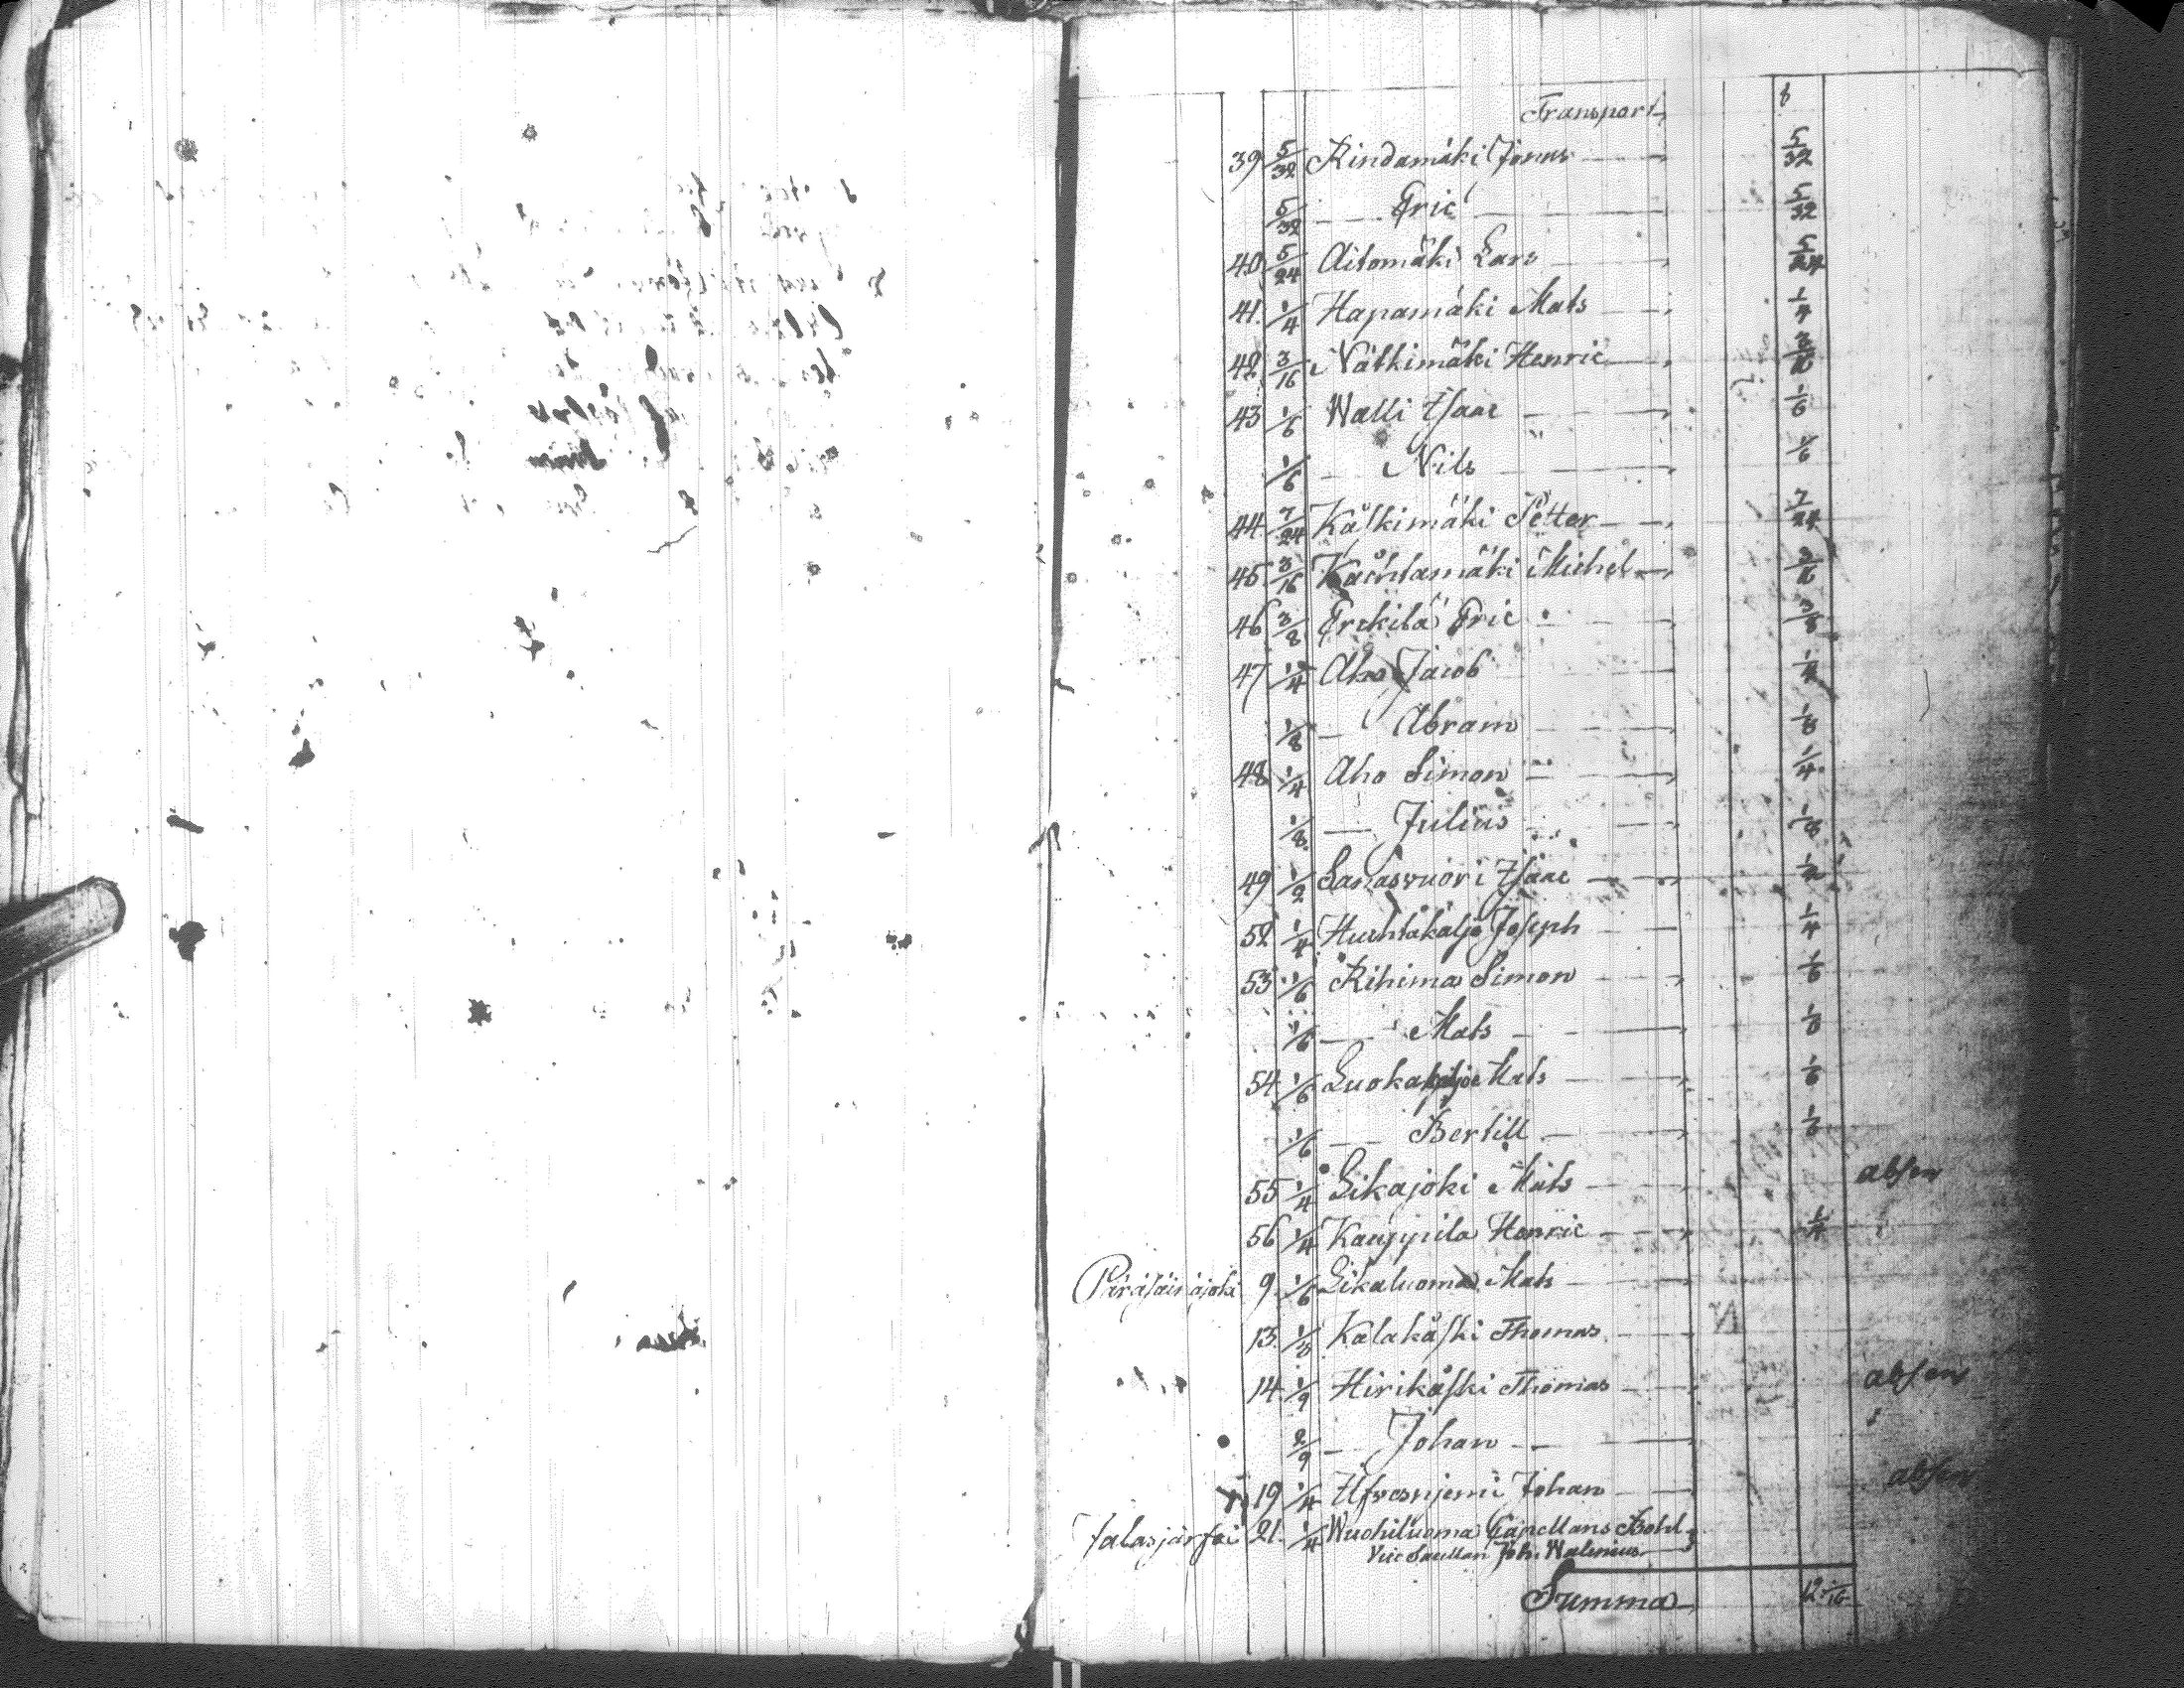 Transport 8
39 5/32 Rindamäki Jonas 5/32
5/32 — Eric 5/32
40 5/24 Aitomäki Lars 5/24
41. 1/4 Hapamäki Mats 1/4
42 3/16 Nätkimäki Henric 3/16
43 1/6 Walli Isaac 1/6
1/6 — Nils 1/6
44. 7/24 Kåskimäki Petter 7/24
45 3/16 Michel 3/16
46 3/8 Erckilä Eric 3/8
47 1/4 Aho Jacob 1/4
1/8 — Abram 1/8
48 1/4 Aho Simon 1/4
1/8 — Julius 1/8
49 1/2 Isaac 1/2
52 1/4 Huchtakaljo Joseph 1/4
53 1/6 Rihima Simon 1/6
1/6 — Mats 1/6
54. 1/6 Mats 1/6
1/6 — Bertill 1/6
55 1/4 Sikajoki Mats absen
56 1/4 Kauppila Henric 1/4
9 1/6 Sikaluoma Mats
13. 1/8 Kalakåski Thomas
14 1/9 Hirikåski Thomas absen
2/9 — Johan
19 1/4 Johan absen
Jalasjärfvi 21. 1/4 Wuohiluoma Capellans Bohl
Joh. Walenius
Summa 12 1/16